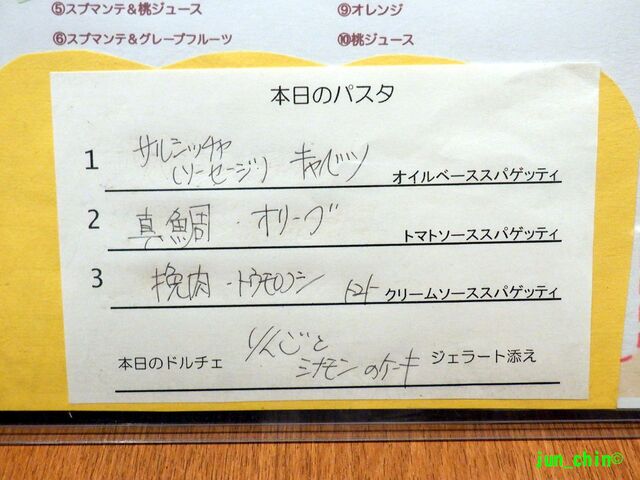 ⑤スプマンテ&桃ジュース
⑨オレンジ
⑥スプマンテ&グレープフルーツ
⑩桃ジュース
本日のパスタ
1 サルシッチャ
(ソーセージ) キャベツ オイルベーススパゲッティ
2 真鯛・オリーブ トマトソーススパゲッティ
3 挽肉・トウモロコシ トマト クリームソーススパゲッティ
りんごと
本日のドルチェ シナモンのケーキ ジェラート添え
jun_chin©